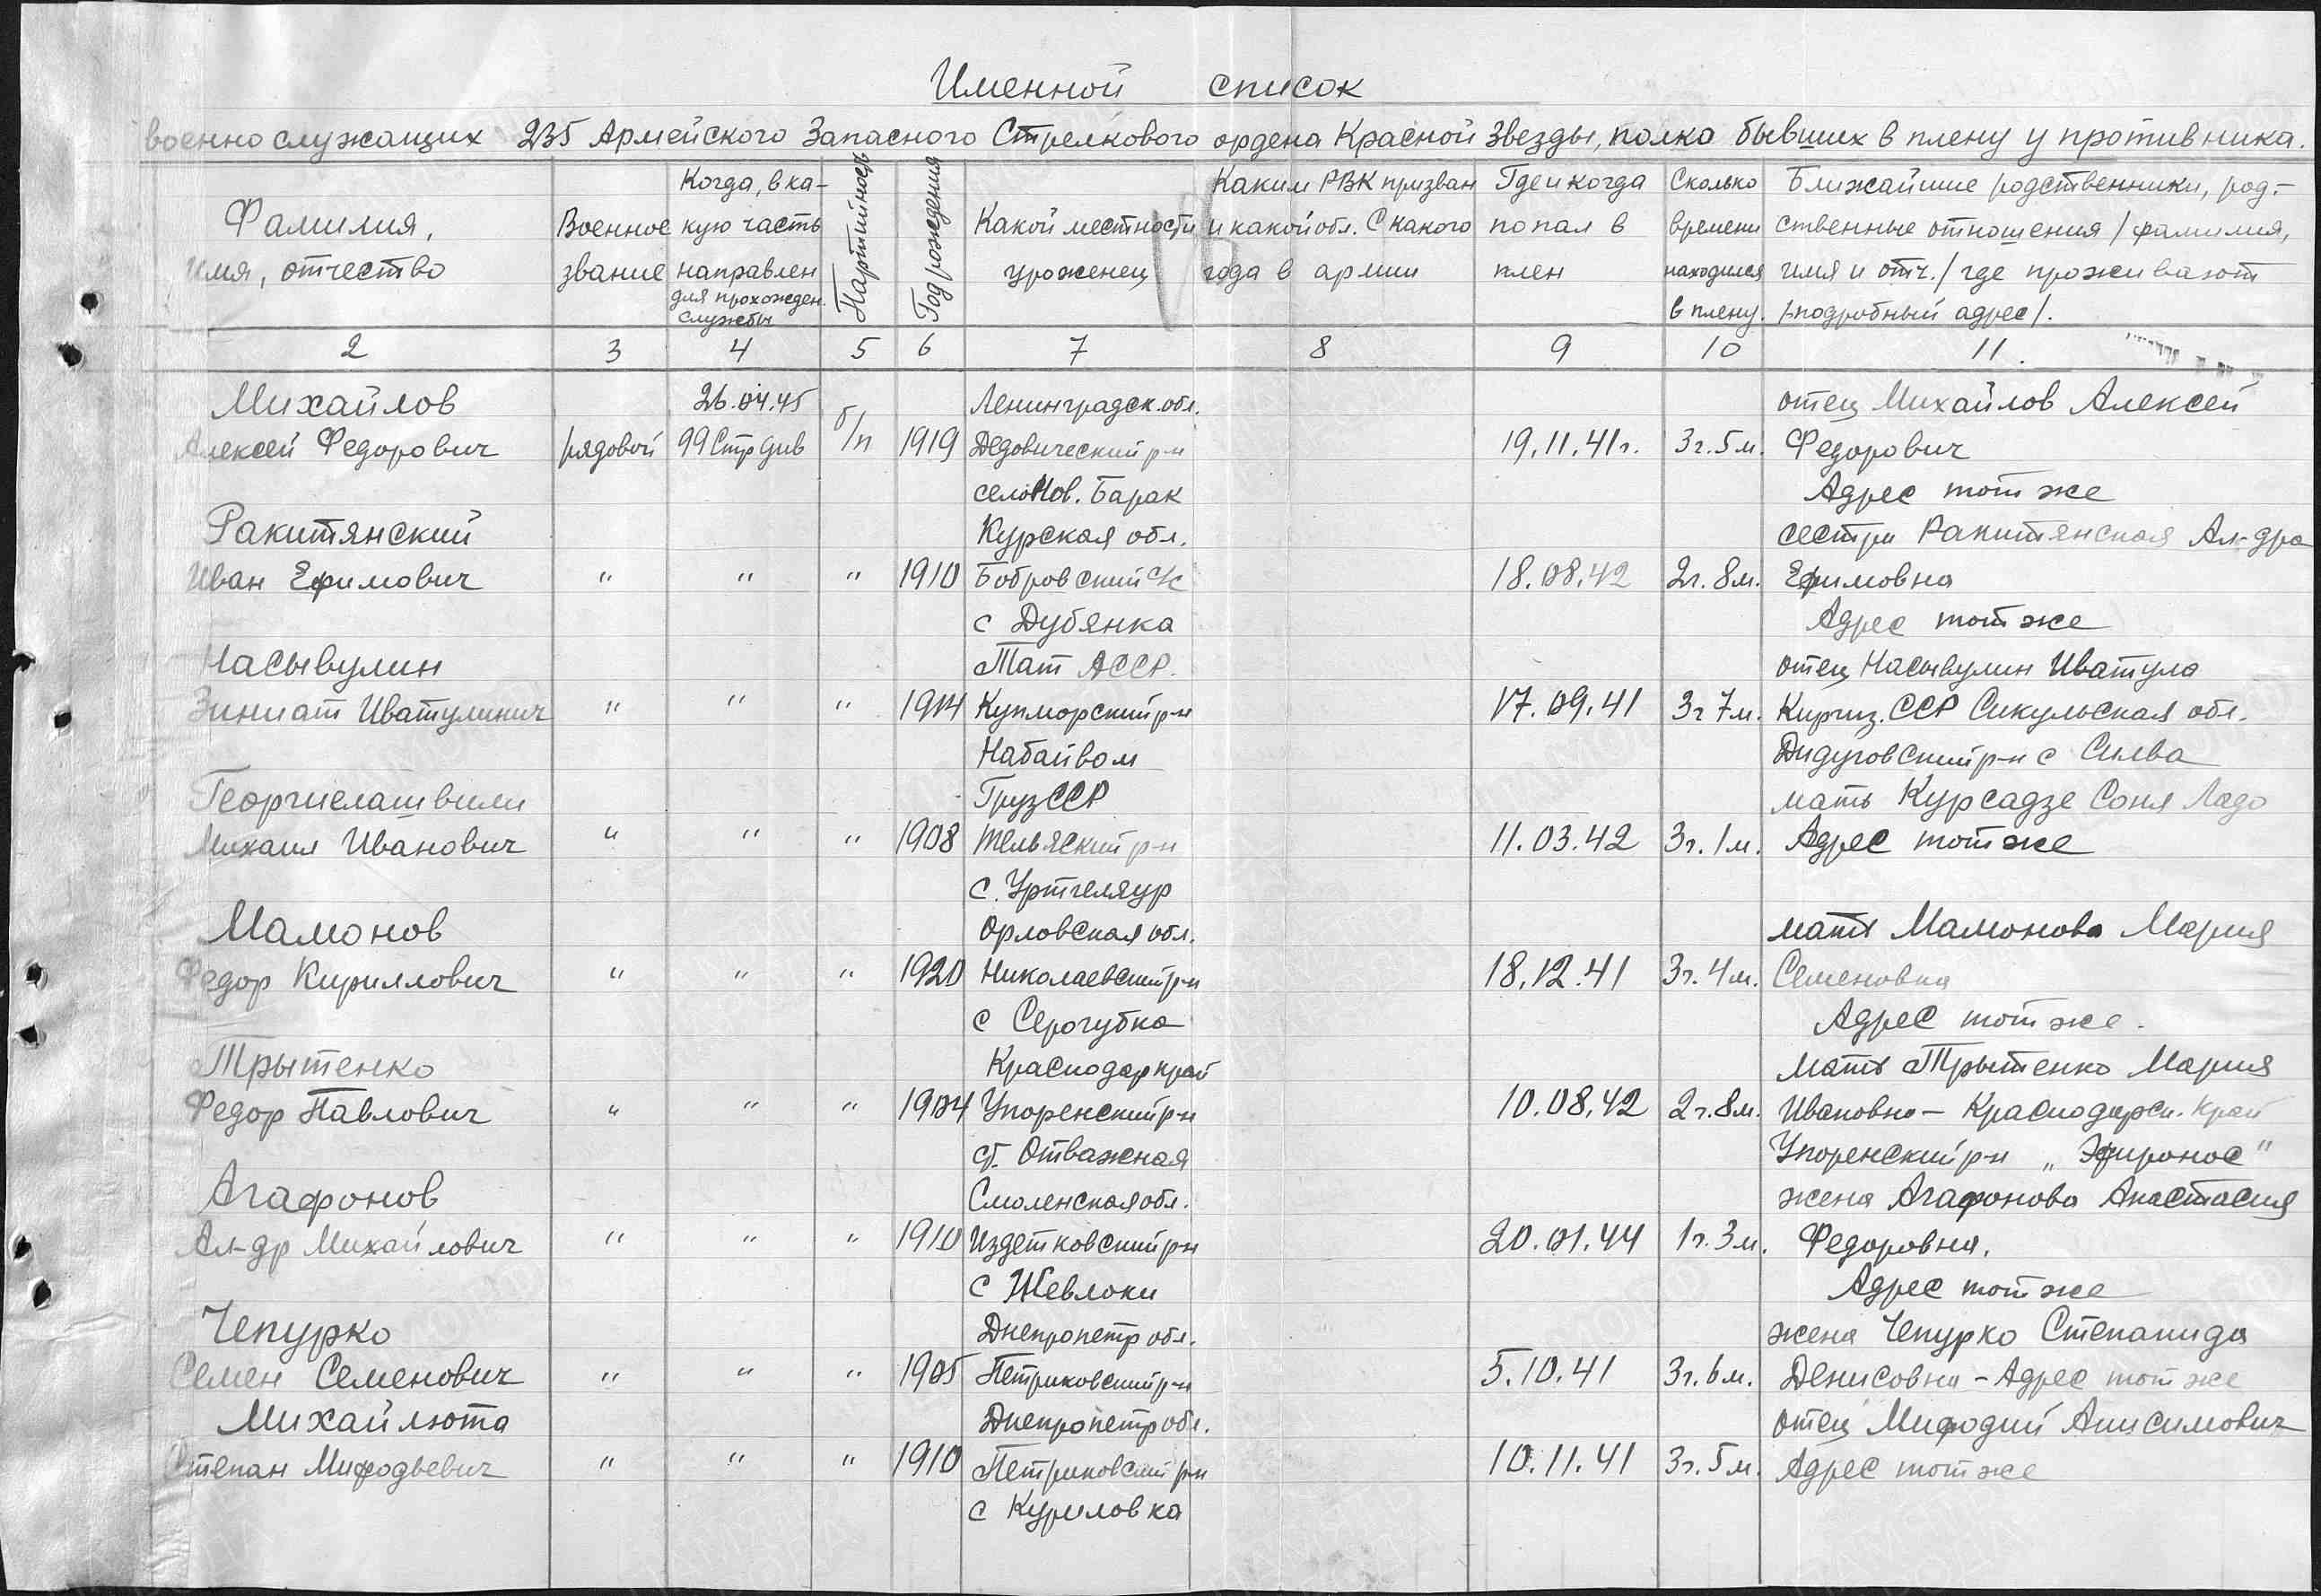 Именной список
военнослужащих 235 Армейского Запасного Стрелкового ордена Красной Звезды, полка бывших в плену у противника.
Фамилия, имя, отчество
Военное звание
Когда, в ка-
кую часть
направлен
для прохожден.
службы
Партийность
Год рождения
Какой местности
уроженец
Каким РВК призван
и какой обл. С какого
года в армии
Где и когда
попал в
плен
Сколько
времени
находился
в плену.
Ближайшие родственники, род-
ственные отношения /фамилия,
имя и отч./ где проживают
/подробный адрес/.
2 3 4 5 6 7 8 9 10 11.
Михайлов 26.04.45 Ленинградск.обл. отец Михайлов Алексей
Алексей Федорович рядовой 99 Стр див б/п 1919 Дедовический р-н 19.11.41г. 3г.5м. Федорович
село Нов. Барак Адрес тот же
Ракитянский Курская обл. сестра Ракитянская Ал-дра
Иван Ефимович " " " 1910 Бобровский с/с 18.08.42 2г.8м. Ефимовна
с Дубянка Адрес тот же
Насывулин Тат АССР. отец Насывулин Иватула
Зиниат Иватулинич " " " 1914 Купморский р-н 17.09.41 3г 7м. Киргиз. ССР Сикульская обл.
Набайвом Дидуговский р-н с Силва
Георгиелашвили Груз ССР мать Курсадзе Соня Ладо
Михаил Иванович " " " 1908 р-н 11.03.42 3г.1м. Адрес тот же
с. Уртгеляур
Мамонов Орловская обл. мать Мамонова Мария
Федор Кириллович " " " 1920 Николаевский р-н 18.12.41 3г.4м. Семеновна
с Серогубка Адрес тот же.
Трытенко Краснодар край мать Трытенко Мария
Федор Павлович " " " 1904 Упоренский р-н 10.08.42 2г.8м. Ивановна – Краснодарск. край
ст. Отважная Упоренский р-н „Эфиронос"
Агафонов Смоленская обл. жена Агафонова Анастасия
Ал-др Михайлович " " " 1910 Издетковский р-н 20.01.44 1г.3м. Федоровна.
с Жевлоки Адрес тот же
Чепурко Днепропетр обл. жена Чепурко Степанида
Семен Семенович " " " 1905 Петриковский р-н 5.10.41 3г.6м. Денисовна – Адрес тот же
Михайлюта Днепропетр обл. отец Мифодий Анисимович
Степан Мифодьевич " " " 1910 Петриковский р-н 10.11.41 3г.5м. Адрес тот же
с Куриловка